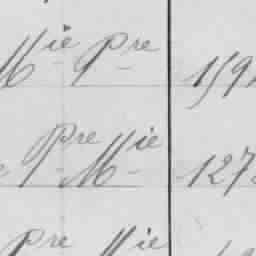 Mie Pre 159
Pre Mie 127
Pre Mie